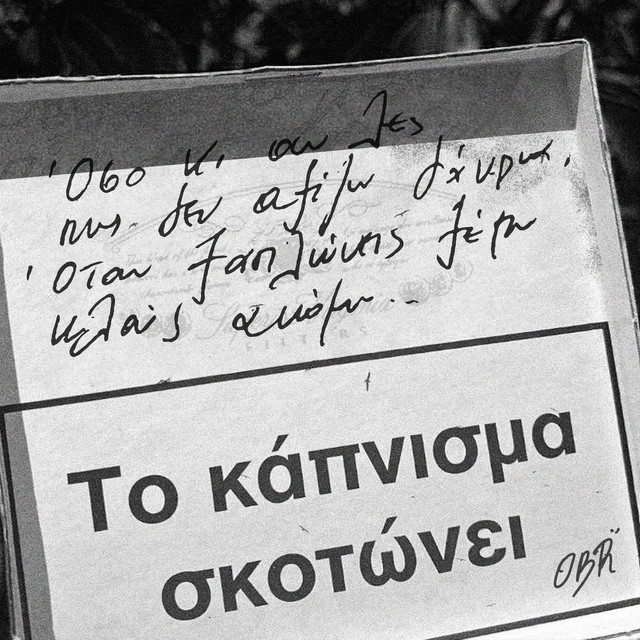 Όσο κι αν λες
πως δεν αξίζω δάκρυα,
όταν ξαπλώνεις ξέρω
κλαις ακόμα...
FILTERS
Το κάπνισμα
σκοτώνει
OBR